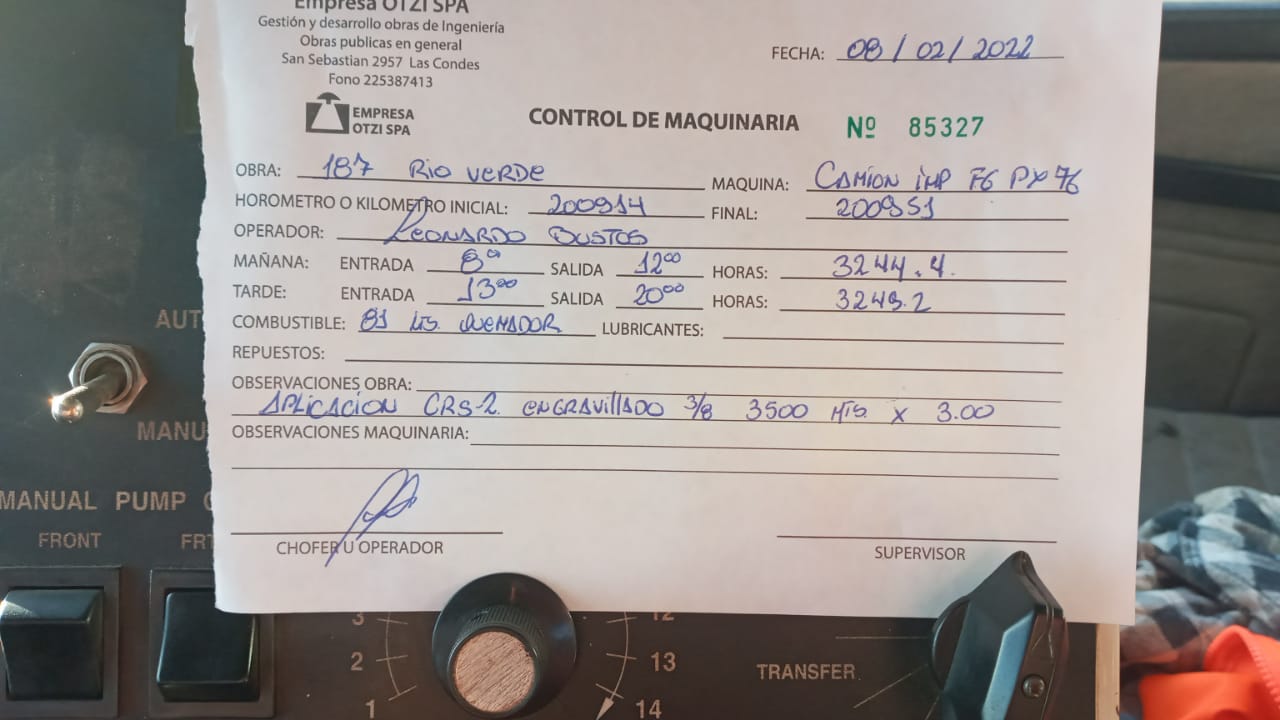 Empresa OTZI SPA
Gestión y desarrollo obras de Ingeniería
Obras publicas en general
San Sebastian 2957 Las Condes
Fono 225387413
EMPRESA
OTZI SPA
FECHA: 08/02/2022
CONTROL DE MAQUINARIA Nº 85327
OBRA: 187 Rio VERDE MAQUINA: CAMION IMP FG PX 76
HOROMETRO O KILOMETRO INICIAL: 200914 FINAL: 200951
OPERADOR: LEONARDO BUSTOS
MAÑANA: ENTRADA 8⁰⁰ SALIDA 12⁰⁰ HORAS: 3244.4.
TARDE: ENTRADA 13⁰⁰ SALIDA 20⁰⁰ HORAS: 3249.2
COMBUSTIBLE: 81 Lts. QUEMADOR LUBRICANTES:
REPUESTOS:
OBSERVACIONES OBRA:
APLICACION CRS-2. ENGRAVillADO 3/8 3500 Mts. x 3.00
OBSERVACIONES MAQUINARIA:
CHOFER U OPERADOR
SUPERVISOR
AUT
MANU
MANUAL PUMP
FRONT
FRT
3
2
1
12
13
14
TRANSFER